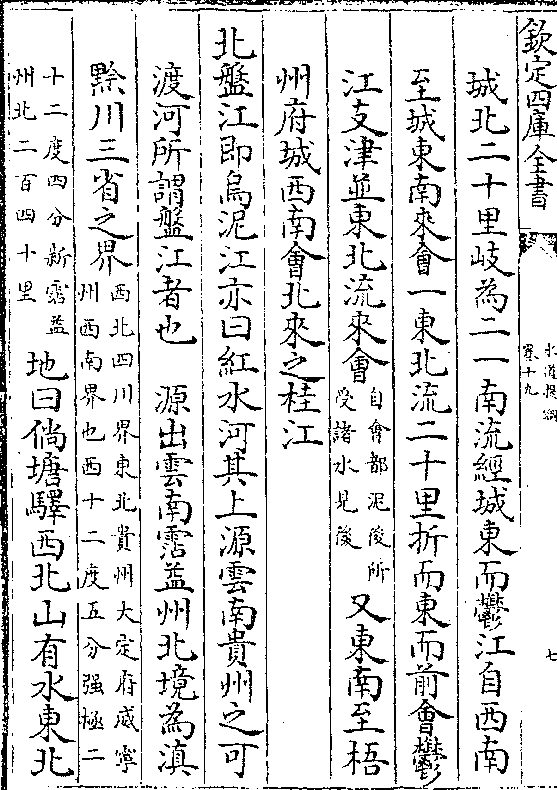 欽定四庫全書
水道提綱
卷十九
七
城北二十里歧為二一南流經城東而鬱江自西南
至城東南來會一東北流二十里折而東而前會鬱
江支津並東北流來會
自會都泥後所
受諸水見後
又東南至梧
州府城西南會北來之桂江
北盤江即烏泥江亦曰紅水河其上源雲南貴州之可
渡河所謂盤江者也 源出雲南霑益州北境為滇
黔川三省之界
西北四川界東北貴州大定府威寧
州西南界也西十二度五分强極二
十二度四分新霑益
州北二百四十里
地曰倘塘驛西北山有水東北